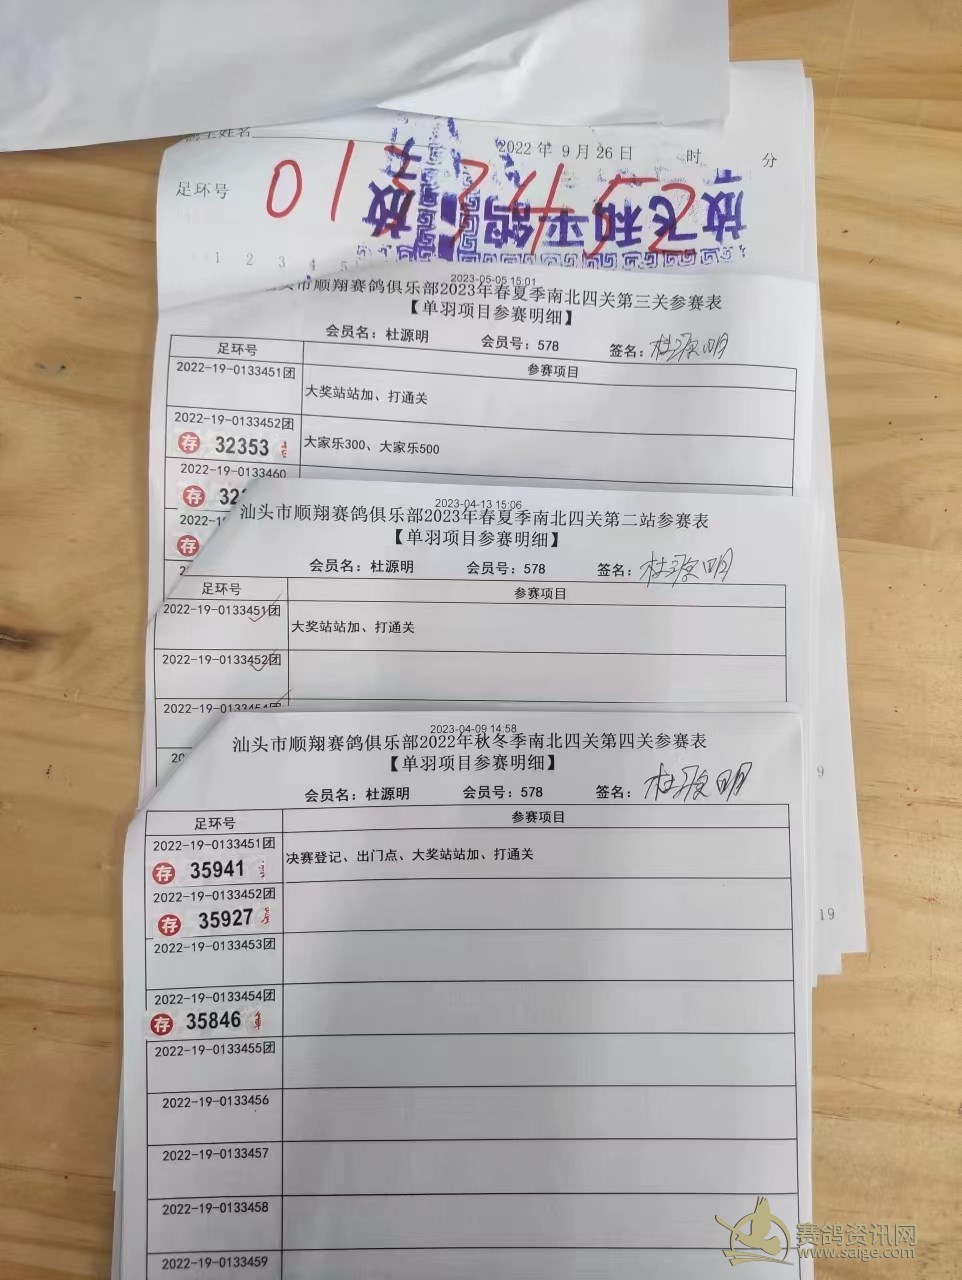 鸽主姓名
2022年 9月26日 时 分
足环号 0133452
放飞和平鸽 放
1 2 3 4 5
2023-05-05 15:01
汕头市顺翔赛鸽俱乐部2023年春夏季南北四关第三关参赛表
【单羽项目参赛明细】
会员名：杜源明 会员号：578 签名：杜源明
足环号 参赛项目
2022-19-0133451团
大奖站站加、打通关
2022-19-0133452团
存 32353 大家乐300、大家乐500
2022-19-0133460
存
存
2023-04-13 15:06
汕头市顺翔赛鸽俱乐部2023年春夏季南北四关第二站参赛表
【单羽项目参赛明细】
会员名：杜源明 会员号：578 签名：杜源明
足环号 参赛项目
2022-19-0133451团
大奖站站加、打通关
2022-19-0133452团
2022-19-0133454团
2023-04-09 14:58
汕头市顺翔赛鸽俱乐部2022年秋冬季南北四关第四关参赛表
【单羽项目参赛明细】
会员名：杜源明 会员号：578 签名：杜源明
9
足环号 参赛项目
2022-19-0133451团
存 35941 决赛登记、出门点、大奖站站加、打通关
2022-19-0133452团
存 35927
19
2022-19-0133453团
2022-19-0133454团
存 35846
2022-19-0133455团
2022-19-0133456
2022-19-0133457
2022-19-0133458
2022-19-0133459
赛鸽资讯网
www.saige.com